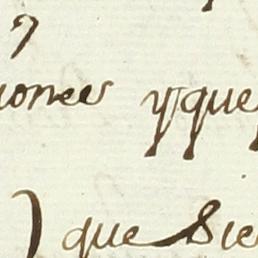 iones y que
) que Sie